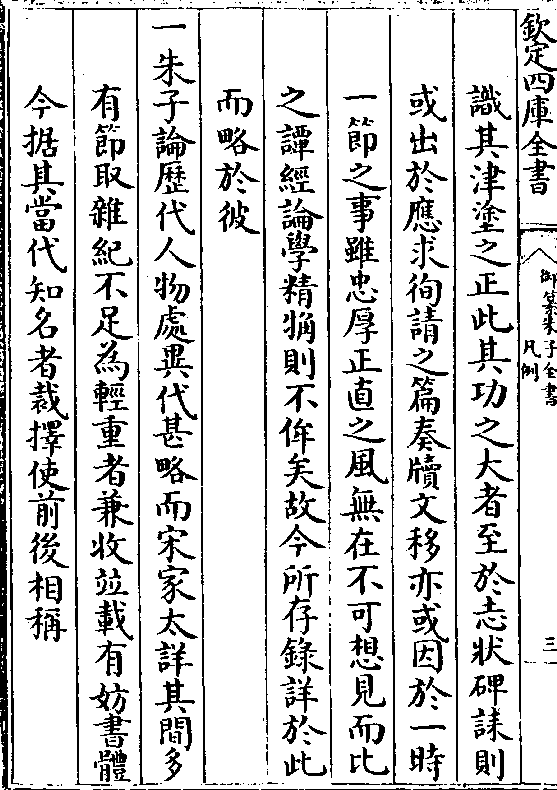 欽定四庫全書
御纂朱子全書
凡例
三
識其津塗之正此其功之大者至於志狀碑誄則
或出於應求徇請之篇奏牘文移亦或因於一時
一節之事雖忠厚正直之風無在不可想見而比
之譚經論學精觕則不侔矣故今所存錄詳於此
而略於彼
一朱子論歷代人物處異代甚略而宋家太詳其間多
有節取雜紀不足為輕重者兼收竝載有妨書體
今据其當代知名者裁擇使前後相稱